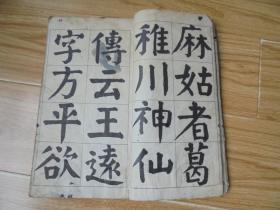 麻姑者葛
稚川神仙
傳云王遠
字方平欲